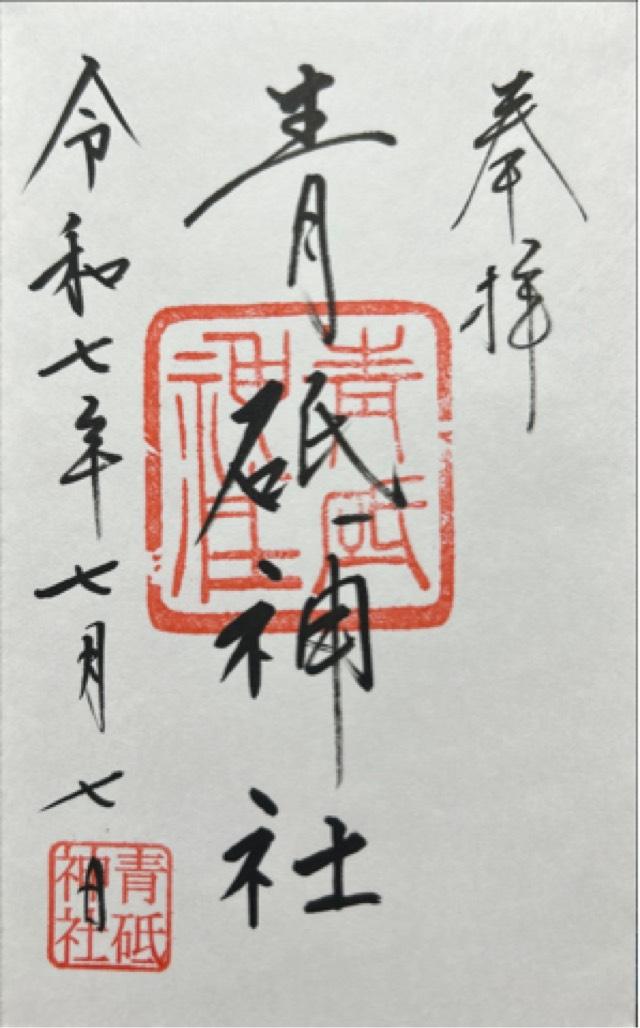 奉拝
青砥神社
令和七年七月七日
青砥
神社
青砥
神社